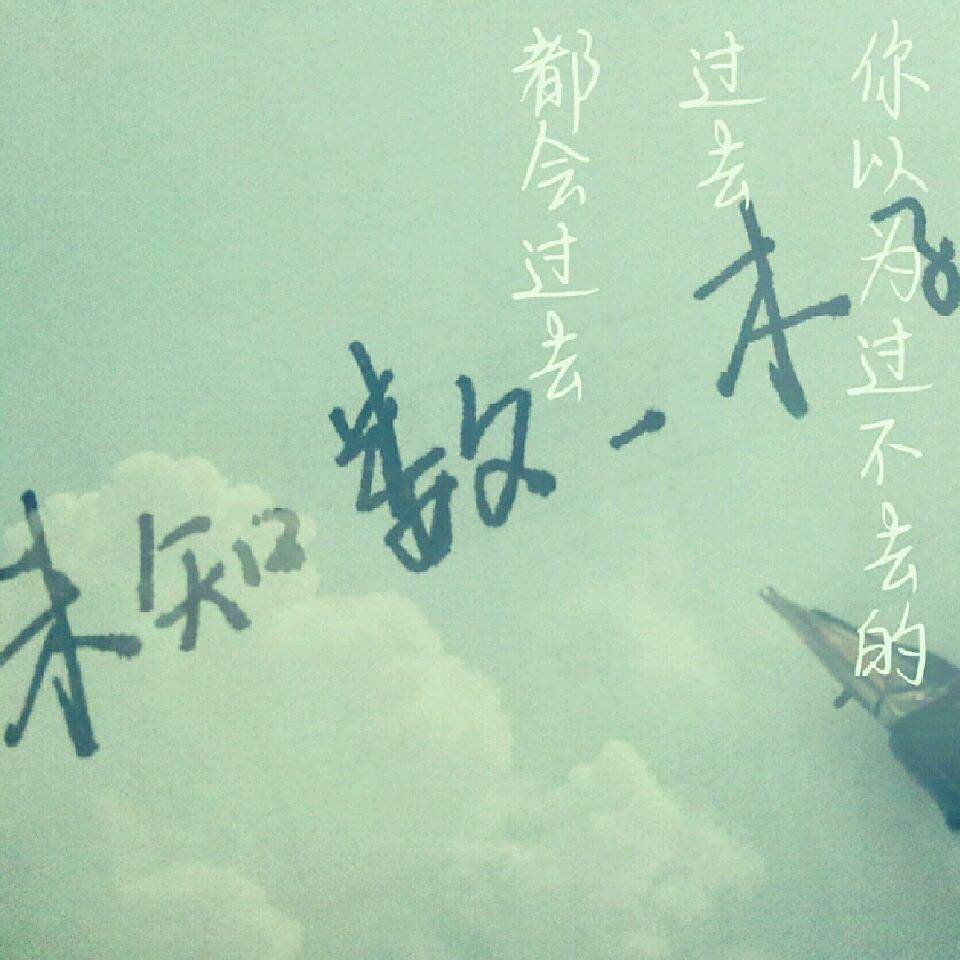 你以为过不去的
过去
都会过去
未知数